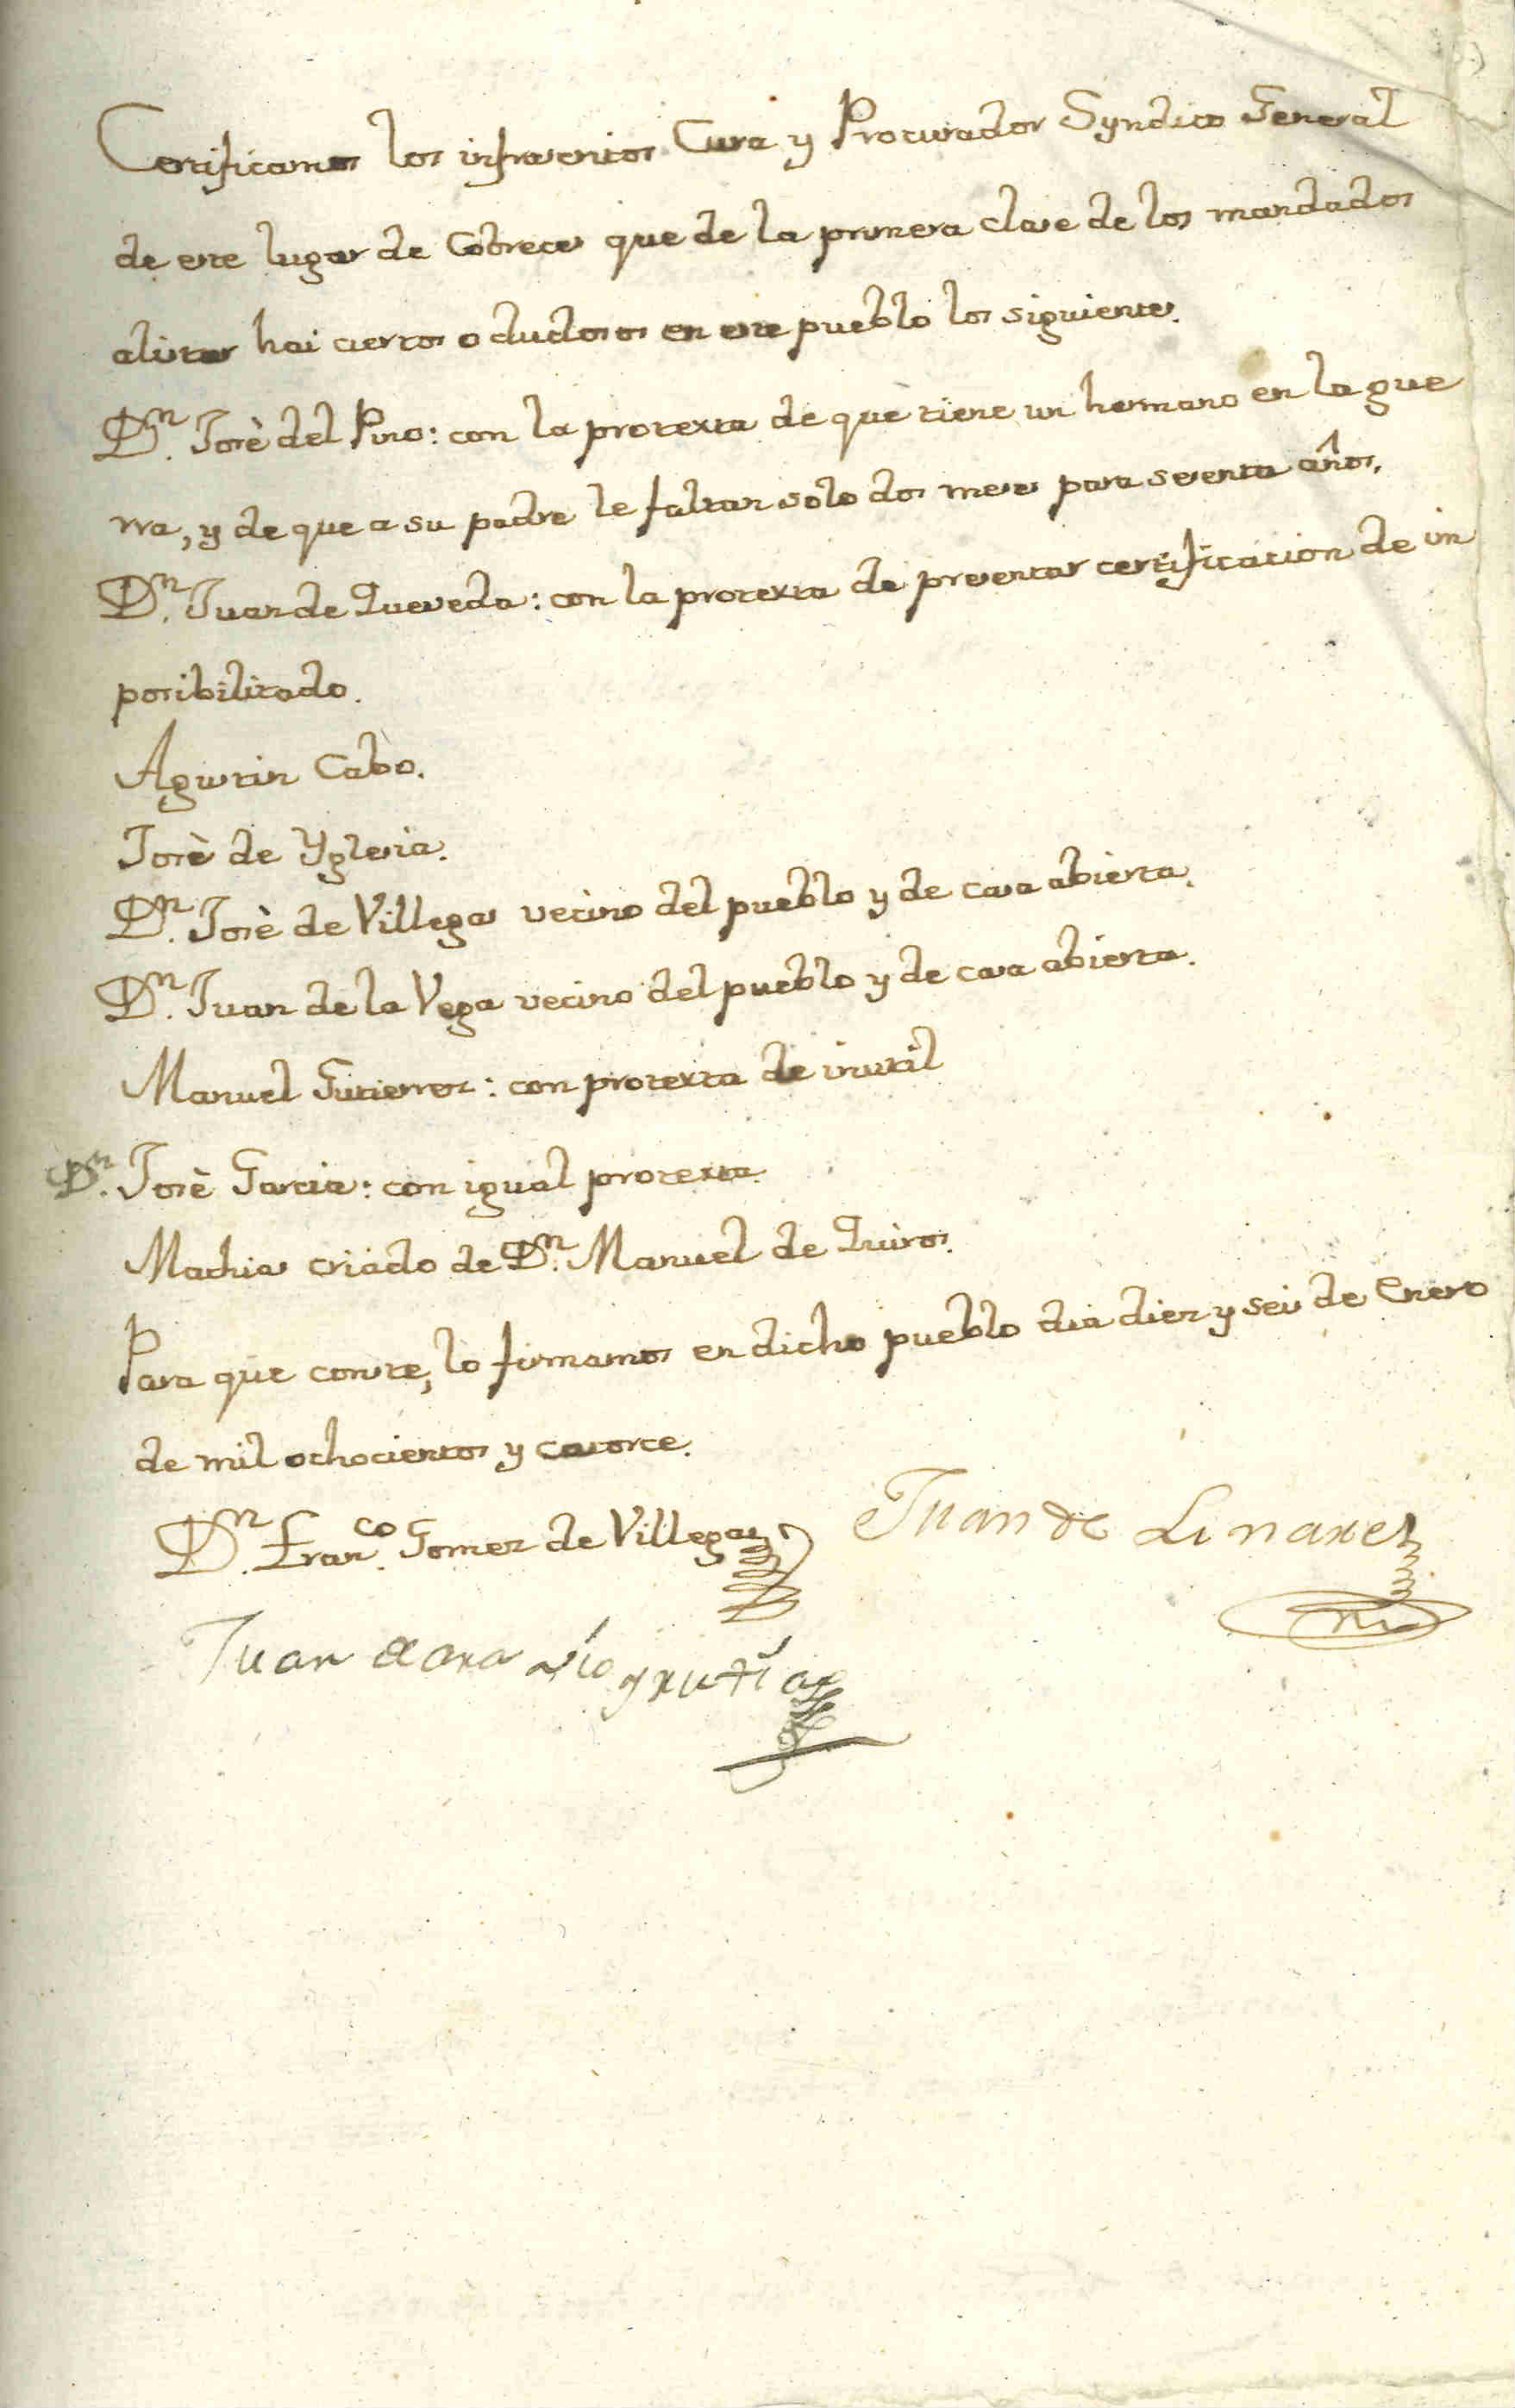 Certificamos los infraescritos Cura y Procurador Syndico General
de este lugar de Cobreces que de la primera clase de los mandados
alistar hai ciertos o dudosos en este pueblo los siguientes.
Dn. Josè del Pino: con la protexta de que tiene un hermano en la gue
rra, y de que a su padre le faltan solo dos meses para sesenta años.
Dn. Juan de Queveda: con la protexta de presentar certificacion de im
posibilitado.
Agustin Cabo.
Josè de Yglesia.
Dn. Josè de Villegas vecino del pueblo y de casa abierta.
Dn. Juan de la Vega vecino del pueblo y de casa abierta.
Manuel Gutierrez: con protexta de inutil
Dn. Josè Garcia: con igual protexta.
Mathias criado de Dn. Manuel de Quiros.
Para que conste, lo firmamos en dicho pueblo dia diez y seis de Enero
de mil ochocientos y catorce.
Dn. Franco. Gomez de Villegas
Juan de Linares
Juan